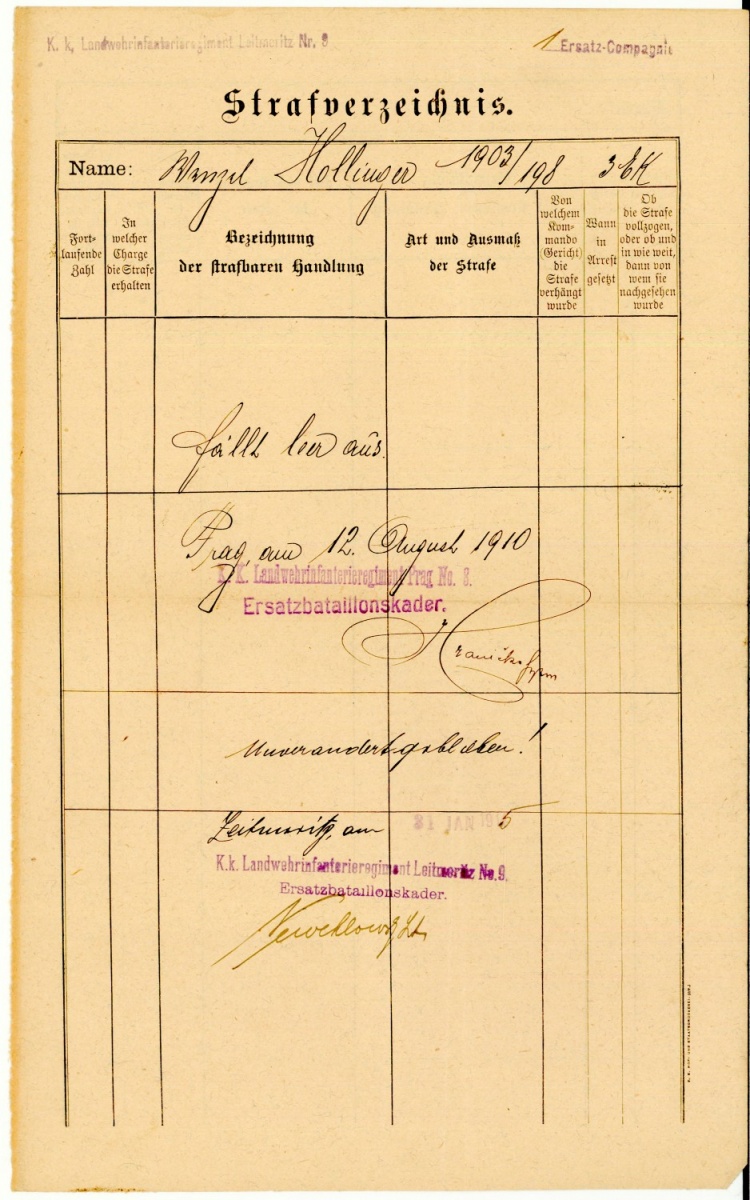 K. k. Landwehrinfanterieregiment Leitmeritz Nr. 9
1 Ersatz-Compagnie
Strafverzeichnis.
Name: Wenzel Hollinger 1903/198 3 EK
Fort-
laufende
Zahl
In
welcher
Charge
die Strafe
erhalten
Bezeichnung
der strafbaren Handlung
Art und Ausmaß
der Strafe
Von
welchem
Kom-
mando
(Gericht)
die
Strafe
verhängt
wurde
Wann
in
Arrest
gesetzt
Ob
die Strafe
vollzogen,
oder ob und
in wie weit,
dann von
wem sie
nachgesehen
wurde
fällt leer aus.
Prag, am 12. August 1910
K. K. Landwehrinfanterieregiment Prag No. 8.
Ersatzbataillonskader.
Unverändert geblieben!
Leitmeritz, am 31 JAN 1915
K.k. Landwehrinfanterieregiment Leitmeritz No. 9.
Ersatzbataillonskader.